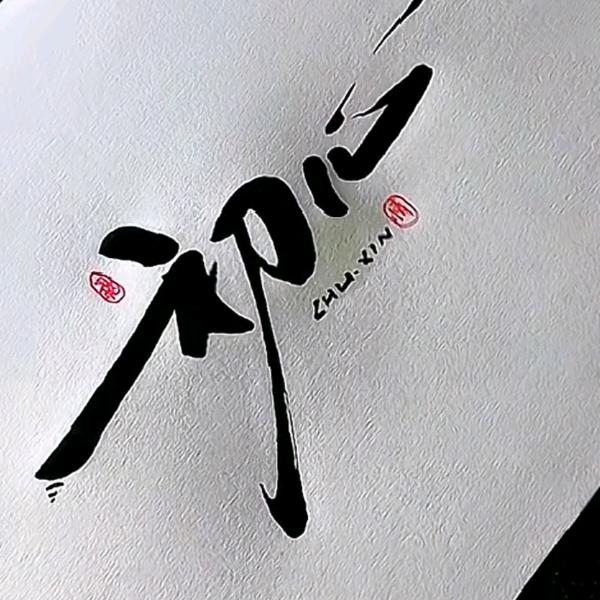 初心
CHU.XIN